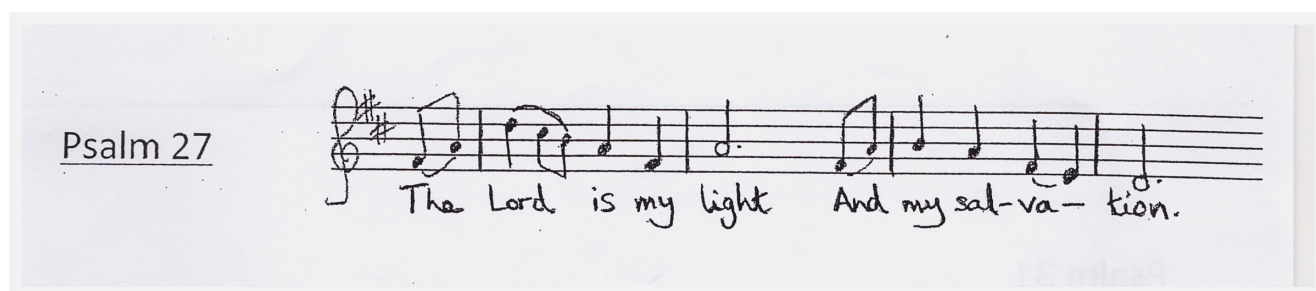 Psalm 27
The Lord is my light And my sal-va-tion.